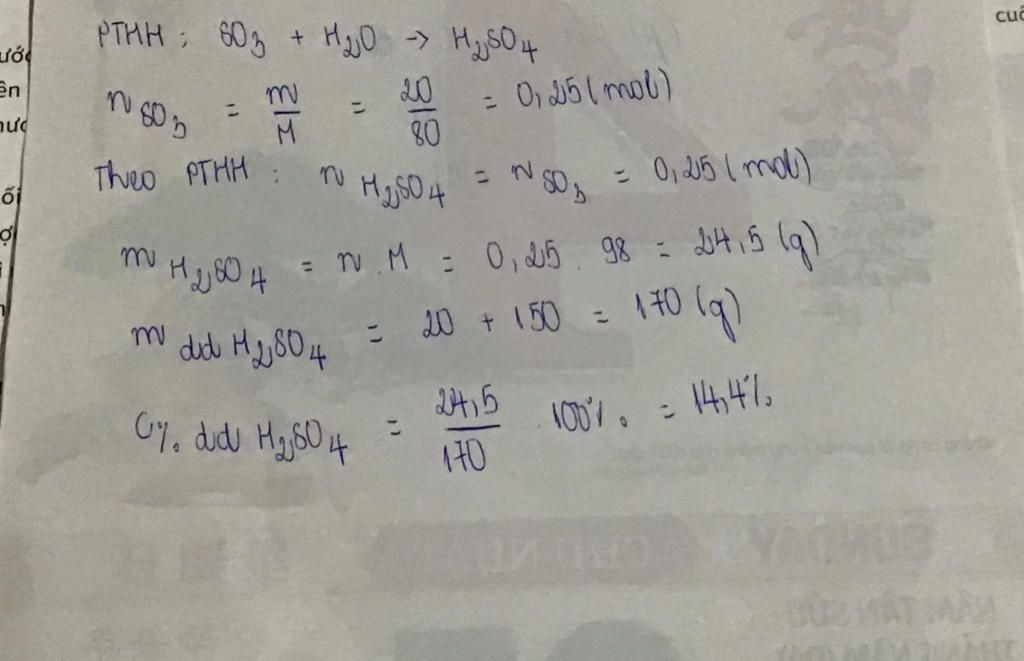 cuố
ướ
ên
ưc
ối
ợ
PTHH : SO3 + H2O → H2SO4
n SO3 = m/M = 20/80 = 0,25 (mol)
Theo PTHH : n H2SO4 = n SO3 = 0,25 (mol)
m H2SO4 = n . M = 0,25 . 98 = 24,5 (g)
m dd H2SO4 = 20 + 150 = 170 (g)
C% dd H2SO4 = 24,5/170 . 100% = 14,4%
SUNDAY CHỦ NHẬT
NĂM TÂN SỬU